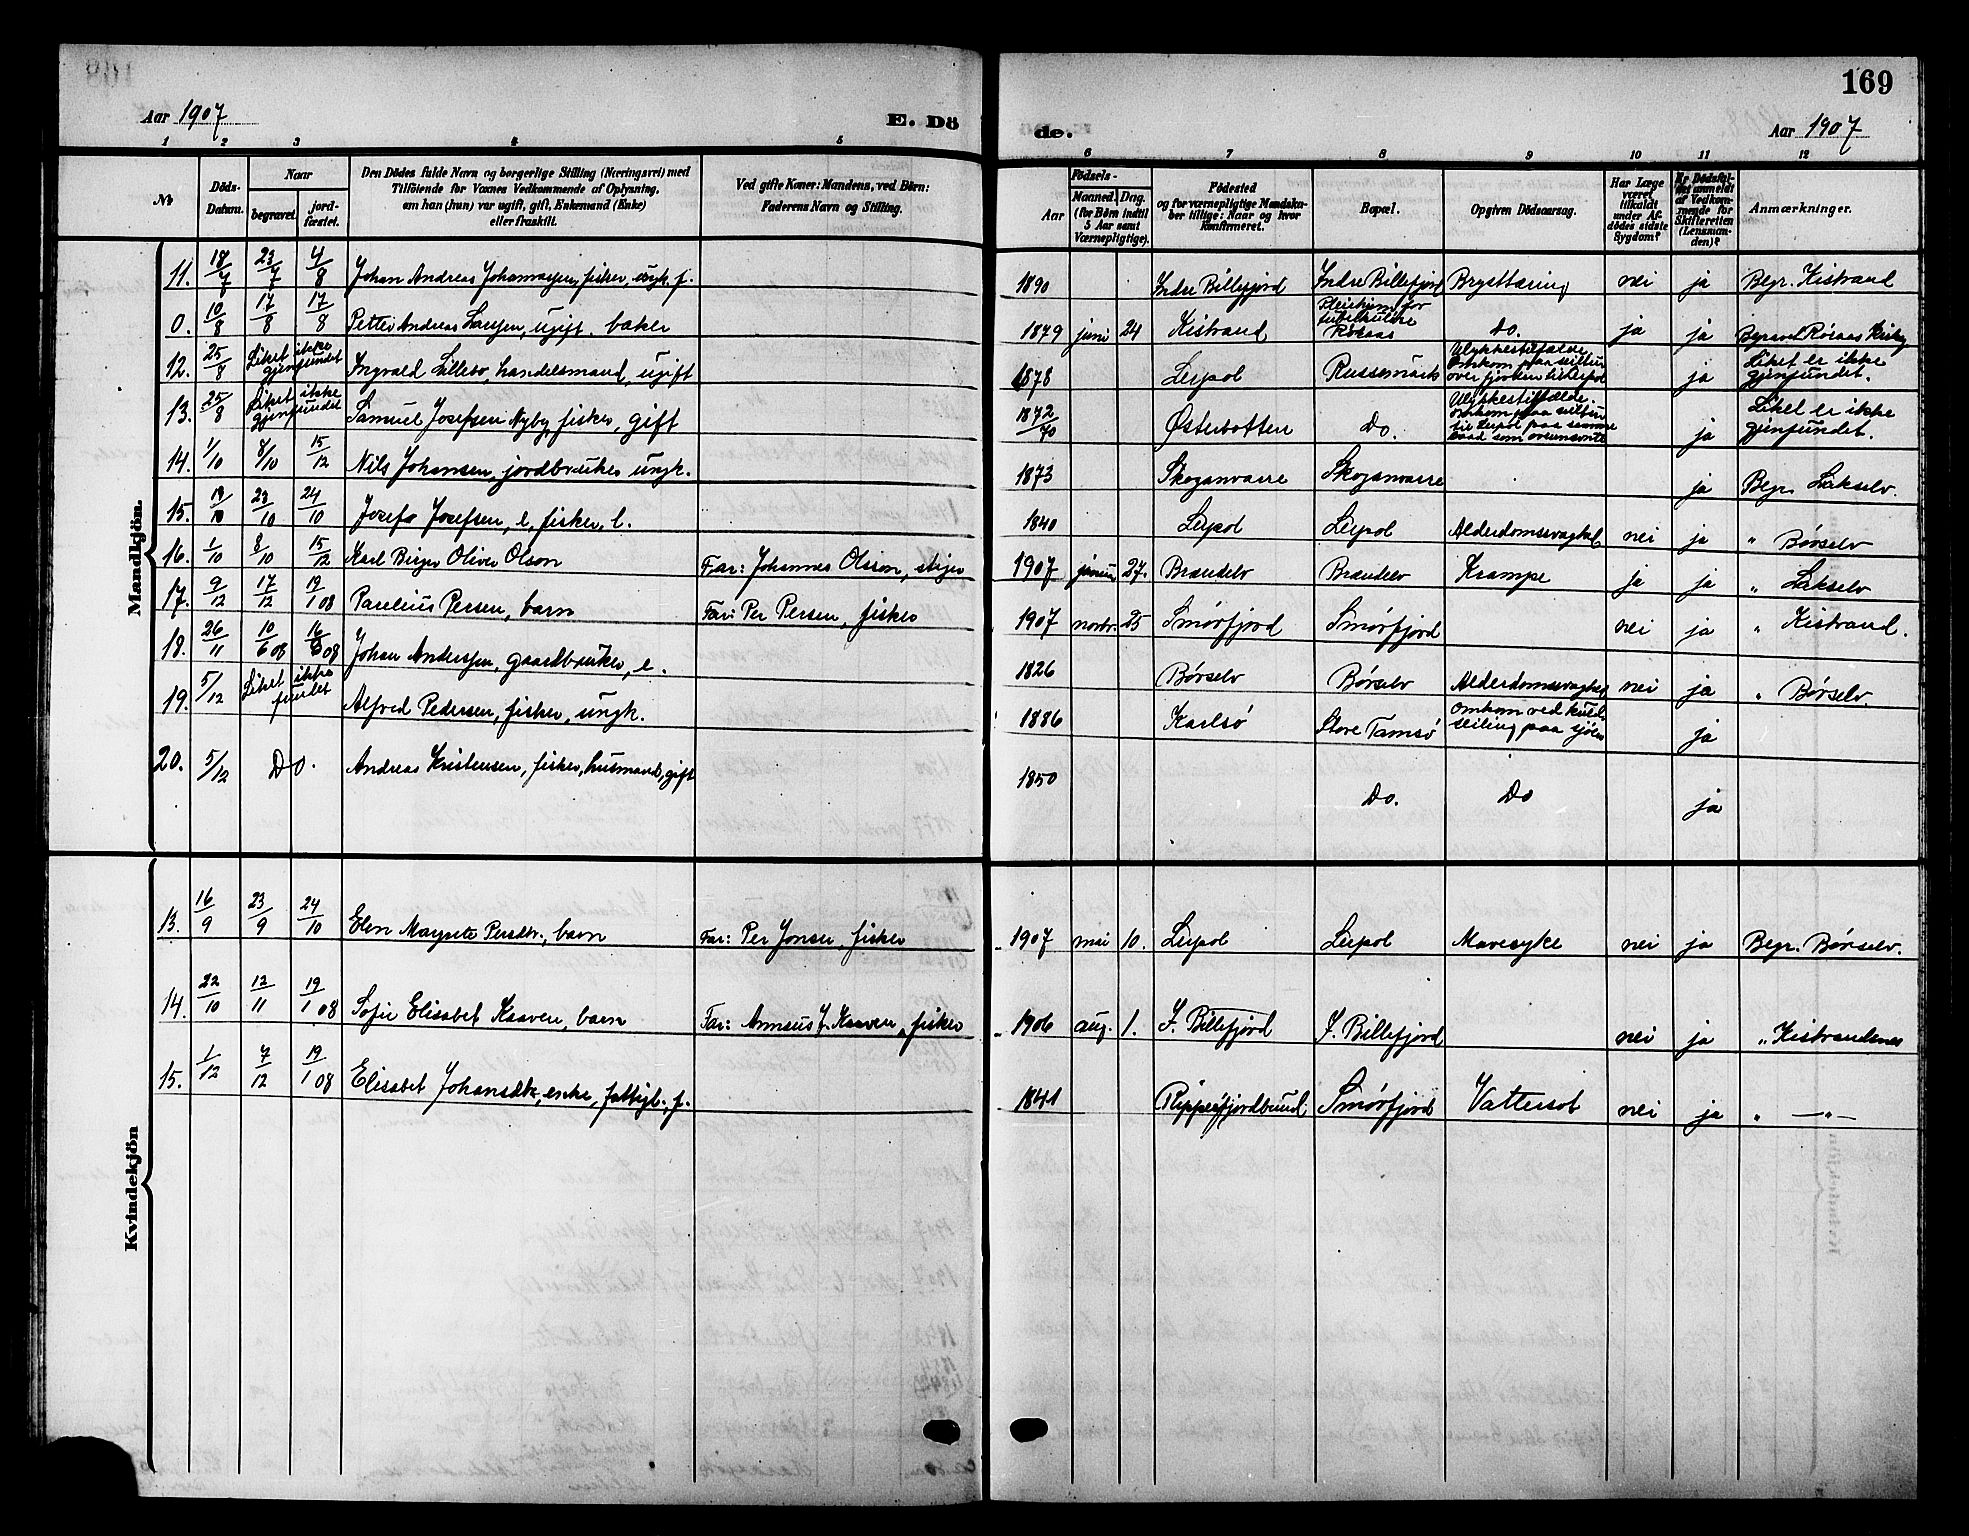 169
Aar 1907
E. Dö
de.
Aar 1907
1 2 3 4 5 6 7 8 9 10 11 12
No
Döds-Datum.
Naar
begravet.
jord-fæstet.
Den Dödes fulde Navn og borgerlige Stilling (Næringsvei) med
Tilföiende for Voxnes Vedkommende af Oplysning,
om han (hun) var ugift, gift, Enkemand (Enke)
eller fraskilt.
Ved gifte Koner: Mandens, ved Börn:
Faderens Navn og Stilling.
Födsels-
Aar
Maaned. Dag.
(for Börn indtil
5 Aar samt
Værnepligtige).
Födested
og for værnepligtige Mandska-
ber tillige: Naar og hvor
konfirmeret.
Bopæl.
Opgiven Dödsaarsag.
Har Læge
været
tilkaldt
under Af-
dödes sidste
Sygdom?
Er Dödsfal-
det anmeldt
af Vedkom-
mende for
Skifteretten
(Lensman-
den)?
Anmærkninger.
Mandkjön.
11. 18/7 23/7 4/8 Johan Andreas Johannessen, fisker, ungk. f. 1890 Indre Billefjord Indre Billefjord Brysttæring nei ja Begr. Kistrand
0. 10/8 17/8 17/8 Petter Andreas Larssen, ugift, baker 1879 juni 24 Kistrand Pleiehjem for tuberkuløse Røraas Do. ja ja Begravet Røraas
12. 25/8 Liket ikke gjenfundet Ingvald Lillebo, handelsmand, ugift 1878 Leipol Russemark Ulykkestilfælde. Omkom paa seiltur over fjorden til Leipol ja Liket er ikke gjenfundet.
13. 25/8 Liket ikke gjenfundet Samuel Josefsen Nyby, fisker, gift 1872/70 Østerbotten Do. Ulykkestilfælde. omkom paa seiltur til Leipol paa samme baad som ovennævnte ja Liket er ikke gjenfundet.
14. 1/10 8/10 15/12 Nils Johansen, jordbruker ungk. 1873 Skoganvarre Skoganvarre ja Begr. Lakselv.
15. 19/10 23/10 24/10 Josef Josefsen, e, fisker, l. 1840 Leipol Leipol Alderdomssvaghet nei ja " Børselv
16. 1/10 8/10 15/12 Karl Birger Oliver Olson Far: Johannes Olsson, stiger 1907 januar 27. Brændelv Brændelv Krampe ja ja " Lakselv
17. 9/12 17/12 19/1 08 Paulius Persen, barn Far: Per Persen, fisker 1907 novbr. 25 Smørfjord Smørfjord nei ja " Kistrand.
18. 26/11 10/6 08 16/6 08 Johan Anderssen, gaardbruker, e. 1826 Børselv Børselv Alderdomssvaghet nei ja " Børselv.
19. 5/12 Liket ikke fundet Alfred Pedersen, fisker, ungk. 1886 Karlsø Store Tamsø omkom ved kuldseiling paa sjøen ja
20. 5/12 Do. Andreas Kristensen, fisker, husmand, gift 1850 Do. Do ja
Kvindekjön
13. 16/9 23/9 24/10 Elen Margrete Persdtr., barn Far: Per Jonsen, fisker 1907 mai 10. Leipol Leipol Mavesyke nei ja Begr. Børselv.
14. 22/10 12/11 19/1 08 Sofie Elisabet Kaaven, barn Far: Kaaven, fisker 1906 aug. 1. I. Billefjord I. Billefjord nei ja " Kistrandnes
15. 1/12 7/12 19/1 08 Elisabet Johansdtr., enke, fattigl., f. 1841 Repperfjordbund Smørfjord Vattersot nei ja " — " —